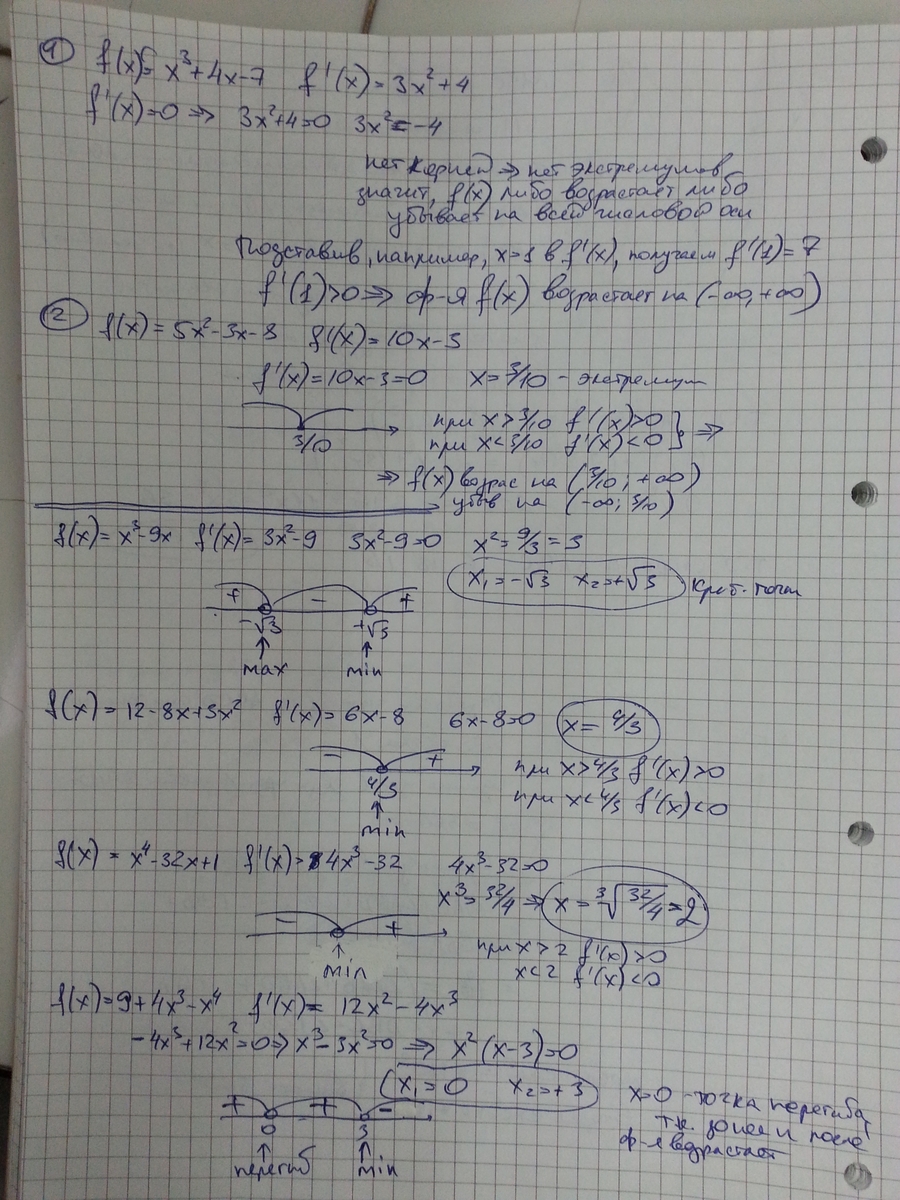 1) f(x) = x³+4x-7 f'(x) = 3x²+4
f'(x)=0 ⇒ 3x²+4=0 3x²=-4
нет корней ⇒ нет экстремумов
значит, f(x) либо возрастает либо
убывает на всей числовой оси
Подставив, например, x=1 в f'(x), получаем f'(1)=7
f'(1)>0 ⇒ ф-я f(x) возрастает на (-∞,+∞)
2) f(x) = 5x²-3x-8 f'(x) = 10x-3
f'(x)=10x-3=0 x=3/10 - экстремум
при x>3/10 f'(x)>0
3/10 при x<3/10 f'(x)<0 } ⇒
⇒ f(x) возрас на (3/10; +∞)
убыв на (-∞; 3/10)
f(x) = x³-9x f'(x) = 3x²-9 3x²-9=0 x²=9/3=3
x₁=-√3 x₂=+√3 Крит. точки
+ - +
-√3 +√3
↑ ↑
max min
f(x) = 12-8x+3x² f'(x) = 6x-8 6x-8=0 x= 4/3
- + при x>4/3 f'(x)>0
4/3 при x<4/3 f'(x)<0
↑
min
f(x) = x⁴-32x+1 f'(x) = 4x³-32 4x³-32=0
x³=32/4 ⇒ x=³√32/4=2
- +
↑ при x>2 f'(x)>0
min x<2 f'(x)<0
f(x)=9+4x³-x⁴ f'(x)= 12x²-4x³
-4x³+12x²=0 ⇒ x³-3x²=0 ⇒ x²(x-3)=0
x₁=0 x₂=+3
+ + - x=0 -точка перегиба,
0 3 т.к. до нее и после
↑ ↑ ф-я возрастает
перегиб min